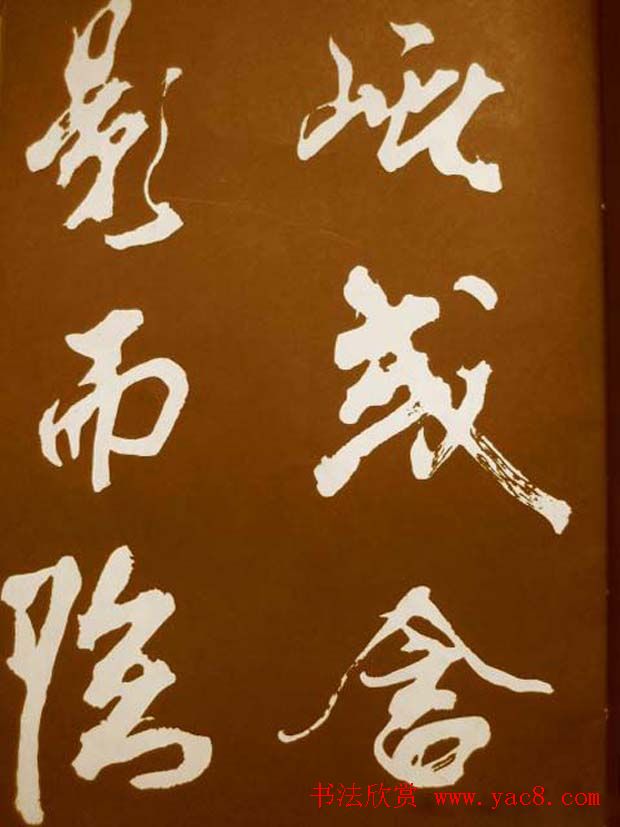 此或舍
影而隐
书法欣赏 www.yac8.com